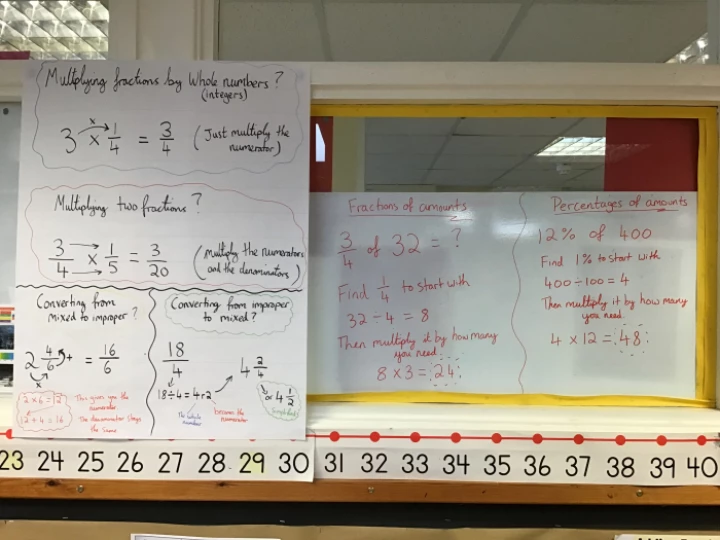 Multiplying fractions by Whole numbers?
(integers)
3 x 1/4 = 3/4 (Just multiply the
numerator)
x
Multiplying two fractions?
3/4 x 1/5 = 3/20 (multiply the numerators
and the denominators)
Converting from
mixed to improper?
2 4/6 + = 16/6
x
2 x 6 = 12 This gives you the
numerator
12 + 4 = 16 The denominator stays
the same
Converting from improper
to mixed?
18/4
4 2/4
18 ÷ 4 = 4 r 2
The whole
number
becomes the
numerator
or 4 1/2
Simplified
Fractions of amounts
3/4 of 32 = ?
Find 1/4 to start with
32 ÷ 4 = 8
Then multiply it by how many
you need.
8 x 3 = 24
Percentages of amounts
12% of 400
Find 1% to start with
400 ÷ 100 = 4
Then multiply it by how many
you need.
4 x 12 = 48
23 24 25 26 27 28 29 30 31 32 33 34 35 36 37 38 39 40